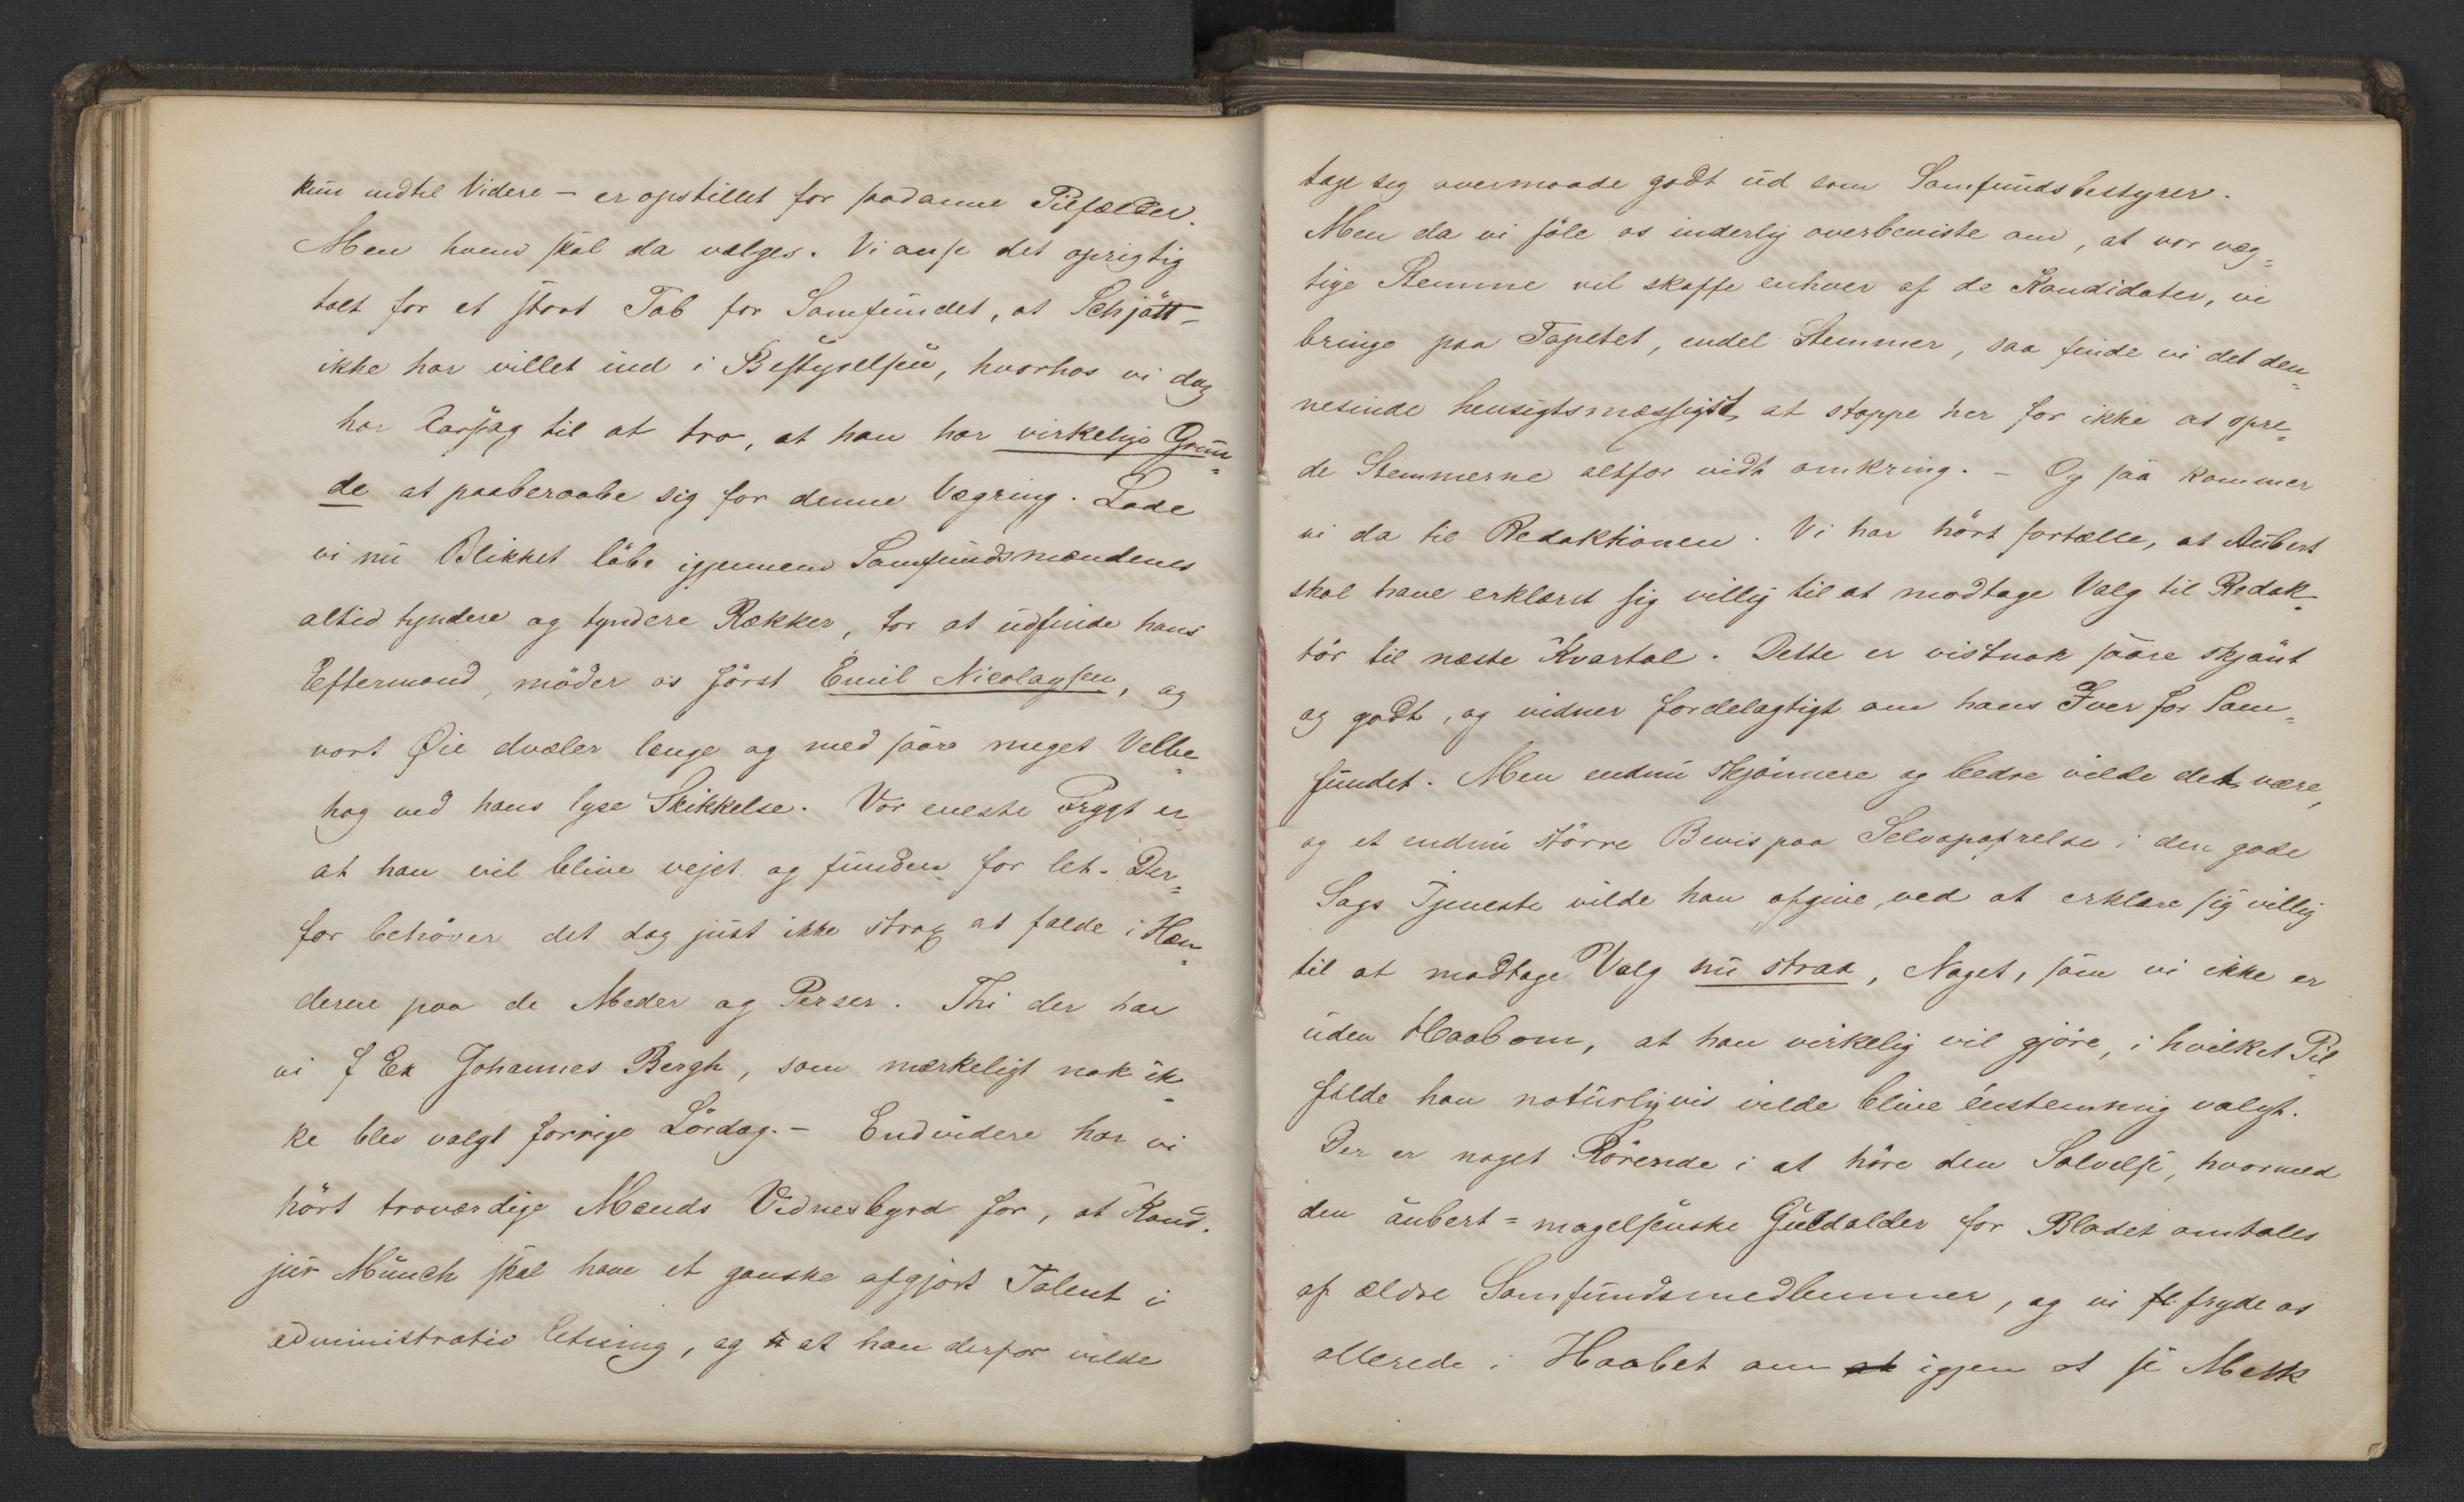 kun indtil Videre – er opstillet for saadanne Tilfælder.
Men hvem skal da vælges. Vi anse det oprigtig
talt for et stort Tab for Samfundet, at Schjött
ikke har villet ind i Bestyrelsen, hvorhos vi dog
har Aarsag til at tro, at han har virkelige Grun-
de at paaberaabe sig for denne Vægring. Lade
vi nu Blikket löbe igjennem Samfundsmændenes
altid tyndere og tyndere Rækker, for at udfinde hans
Eftermand, möder os först Emil Nicolaysen, og
vort Øie dvæler længe og med saare meget Velbe-
hag ved hans lyse Skikkelse. Vor eneste Frygt er
at han vil blive vejet og funden for let. Der-
for behöver det dog just ikke strax at falde i Hæn-
derne paa de Meder og Perser. Thi der har
vi f Ex Johannes Bergh, som mærkeligt nok ik-
ke blev valgt forrige Lördag. – Endvidere har vi
hört troværdige Mænds Vidnesbyrd for, at Kand.
jur Munch skal have et ganske afgjort Talent i
administrativ Retning, og at han derfor vilde
tage sig overmaade godt ud som Samfundsbestyrer.
Men da vi föle os inderlig overbeviste om, at vor væg-
tige Stemme vil skaffe enhver af de Kandidater, vi
bringe paa Tapetet, endel Stemmer, saa finde vi det den-
nesinde hensigtsmæssigst at stoppe her for ikke at spre-
de Stemmerne altfor vidt omkring. – Og saa kommer
vi da til Redaktionen. Vi har hört fortælle, at Aubert
skal have erklæret sig villig til at modtage Valg til Redak-
tör til næste Kvartal. Dette er vistnok saare skjönt
og godt, og vidner fordelagtigt om hans Iver for Sam-
fundet. Men endnu skjönnere og bedre vilde det være,
og et endnu större Bevis paa Selvopofrelse i den gode
Sags Tjeneste vilde han afgive, ved at erklære sig villig
til at modtage Valg nu strax, Noget, som vi ikke er
uden Haab om, at han virkelig vil gjöre, i hvilket Til-
fælde han naturligvis vilde blive énstemmig valgt.
Der er noget Rörende i at höre den Salvelse, hvormed
den aubert-magelsenske Guldalder for Bladet omtales
af ældre Samfundsmedlemmer, og vi fl. fryde os
allerede i Haabet om at igjen at se Melk